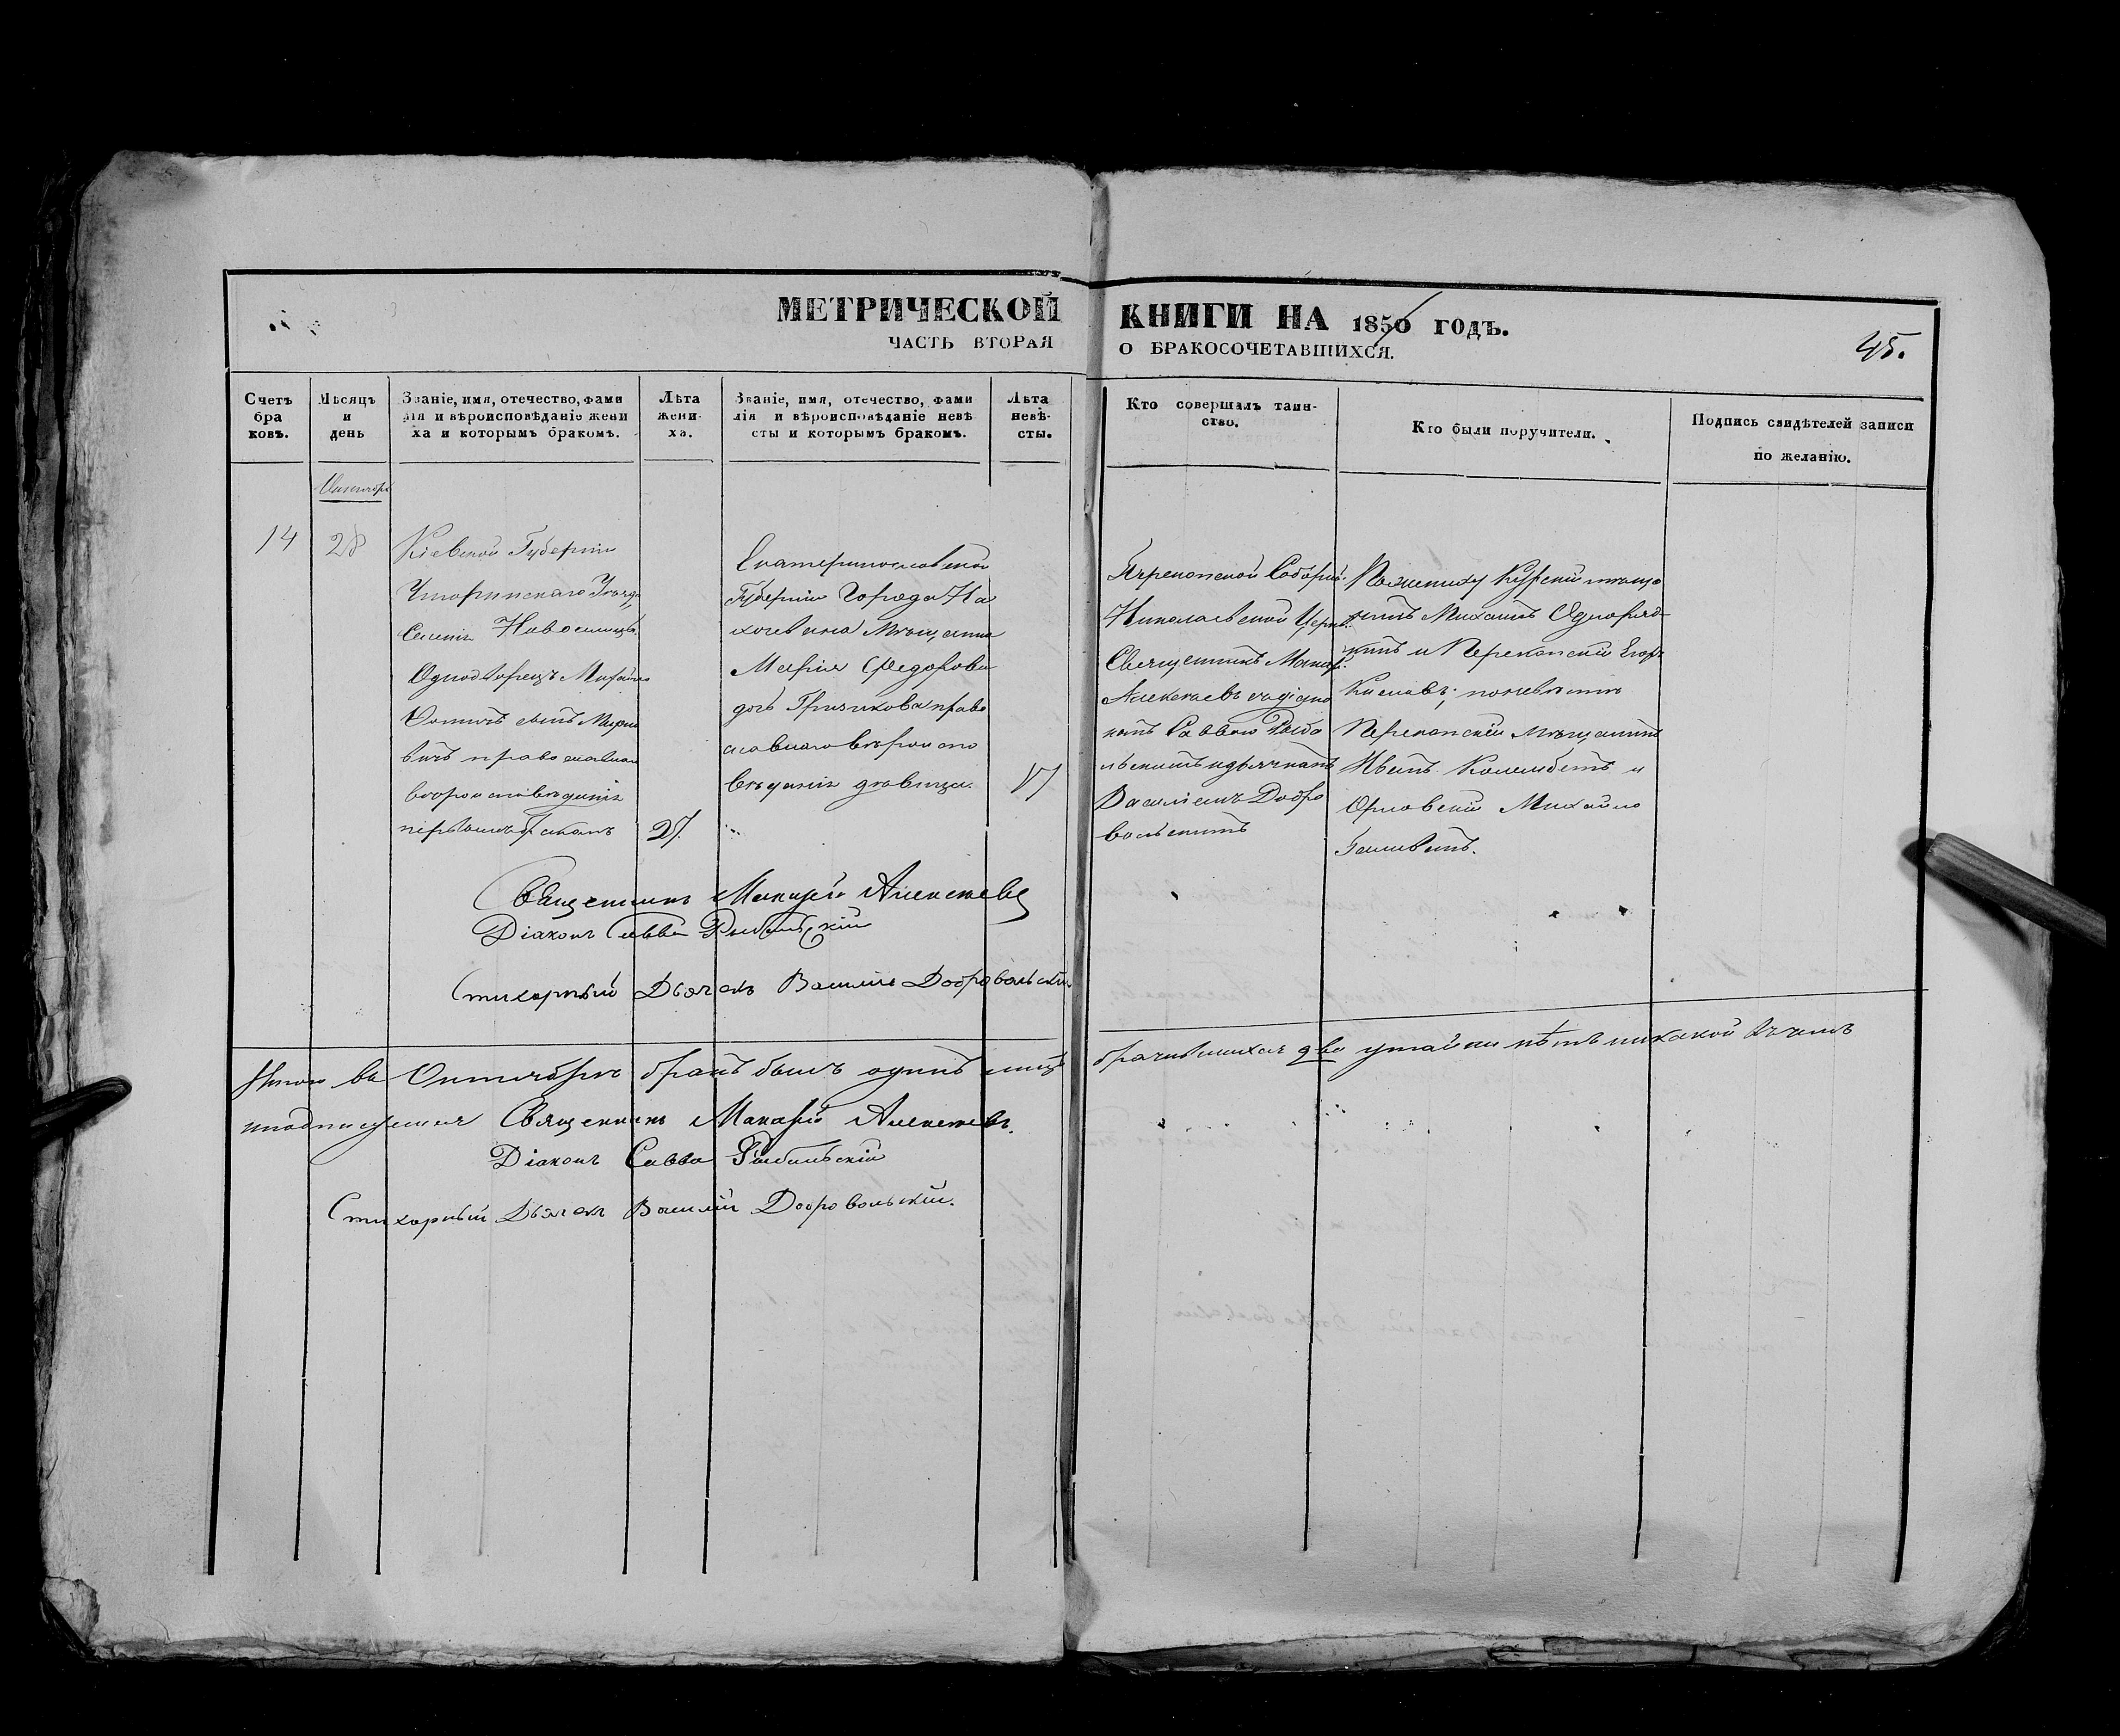 МЕТРИЧЕСКОЙ КНИГИ НА 1850 ГОДЪ.
ЧАСТЬ ВТОРАЯ О БРАКОСОЧЕТАВШИХСЯ.
45.
Счетъ
бра
ковъ.
Мѣсяцъ
и
день
Званіе, имя, отечество, фами
лія и вѣроисповѣданіе жени
ха и которымъ бракомъ.
Лѣта
жени-
ха.
Званіе, имя, отечество, фами
лія и вѣроисповѣданіе невѣ
сты и которымъ бракомъ.
Лѣта
невѣ-
сты.
Кто совершалъ таин-
ство.
Кто были поручители.
Подпись свидѣтелей записи
по желанію.
Октября
14
28
Кіевской Губерніи
Чигоринскаго Уѣзда
Селенія
Однодворецъ Михайло
сынъ
вичъ православнаго
вѣроисповѣданія
первымъ бракомъ
27.
Екатеринославской
Губерніи Города На
хичевана Мѣщанка
Марія Федорова
дочь Гризикова право
славнаго вѣроиспо
вѣданія дѣвица.
17
Перекопской Соборно-
Николаевской Церкви
Священникъ Макарій
Алексѣевъ съ діако
номъ Саввою Рыба
льскимъ и дьячкомъ
Василіемъ Добро
вольскимъ
По жениху Курскій мѣща
нинъ Михаилъ Однораd
кинъ и Перекопскій Егоръ
Киславъ; по невѣстѣ
Перекопскій Мѣщанинъ
Иванъ Колембетъ и
Орловскій Михайло
Священникъ Макарій Алексѣевъ
Діаконъ Савва Рыбальскій
Стихарный Дьячекъ Василій Добровольскій
Итого въ Октябрѣ бракъ былъ одинъ лицъ брачившихся два утайки нѣтъ никакой въ чемъ
и подписуемся Священникъ Макарій Алексѣевъ.
Діаконъ Савва Рыбальскій
Стихарный Дьячекъ Василій Добровольскій.